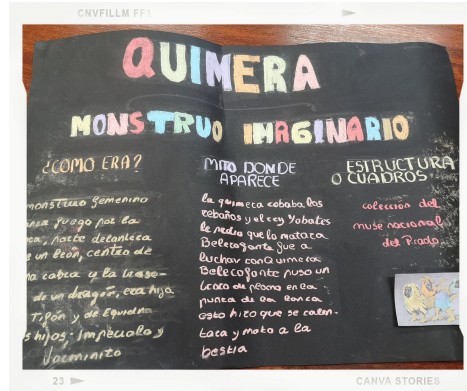 CNVFILLM FF1
QUIMERA
MONSTRUO IMAGINARIO
¿COMO ERA?
monstruo femenino
fuego por la
parte delantera
e un león, centro de
cabra y la
de un dragón, era hija
Tifón y de Equidna
s hijos: Imperialo y
MITO DONDE
APARECE
la quimera robaba los
rebaños y el rey Yobates
le pidio que lo matara
Belerofonte fue a
luchar con Quimera
Belerofonte puso un
trozo de plomo en la
punta de la lanza
esto hizo que se calen-
tara y mato a la
bestia
ESTRUCTURA
O CUADROS
coleccion del
muse nacional
del Prado
23
CANVA STORIES